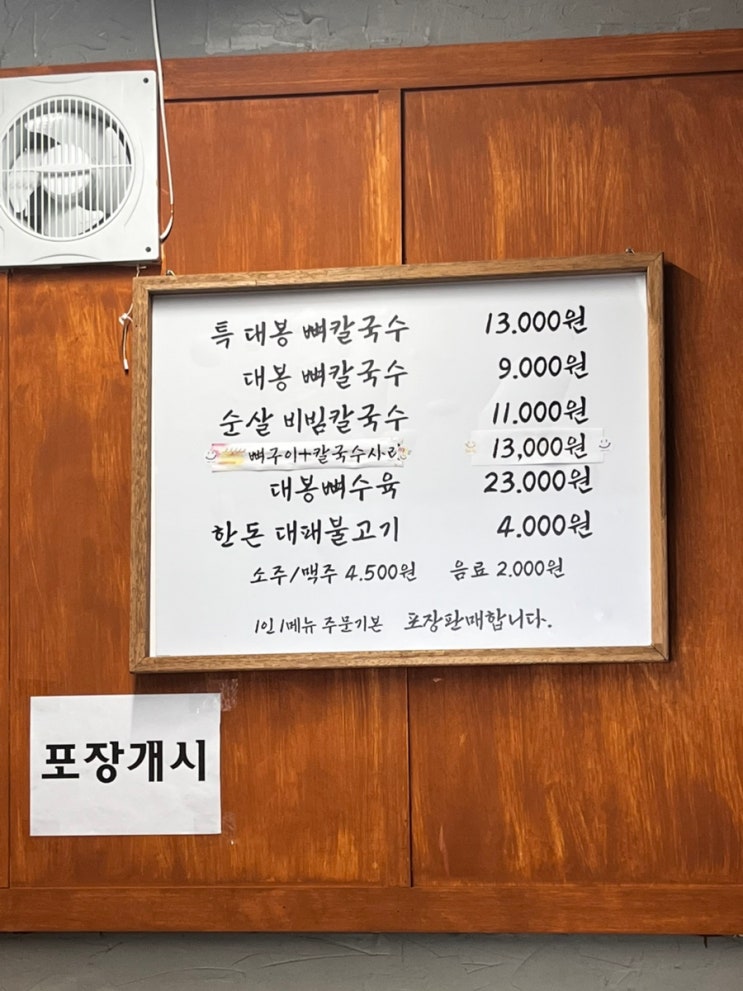 특 대봉 뼈칼국수 13.000원
대봉 뼈칼국수 9.000원
순살 비빔칼국수 11.000원
뼈구이+칼국수사리 13,000원
대봉뼈수육 23.000원
한돈 대패불고기 4.000원
소주/맥주 4.500원 음료 2.000원
1인 1메뉴 주문기본 포장판매합니다.
포장개시